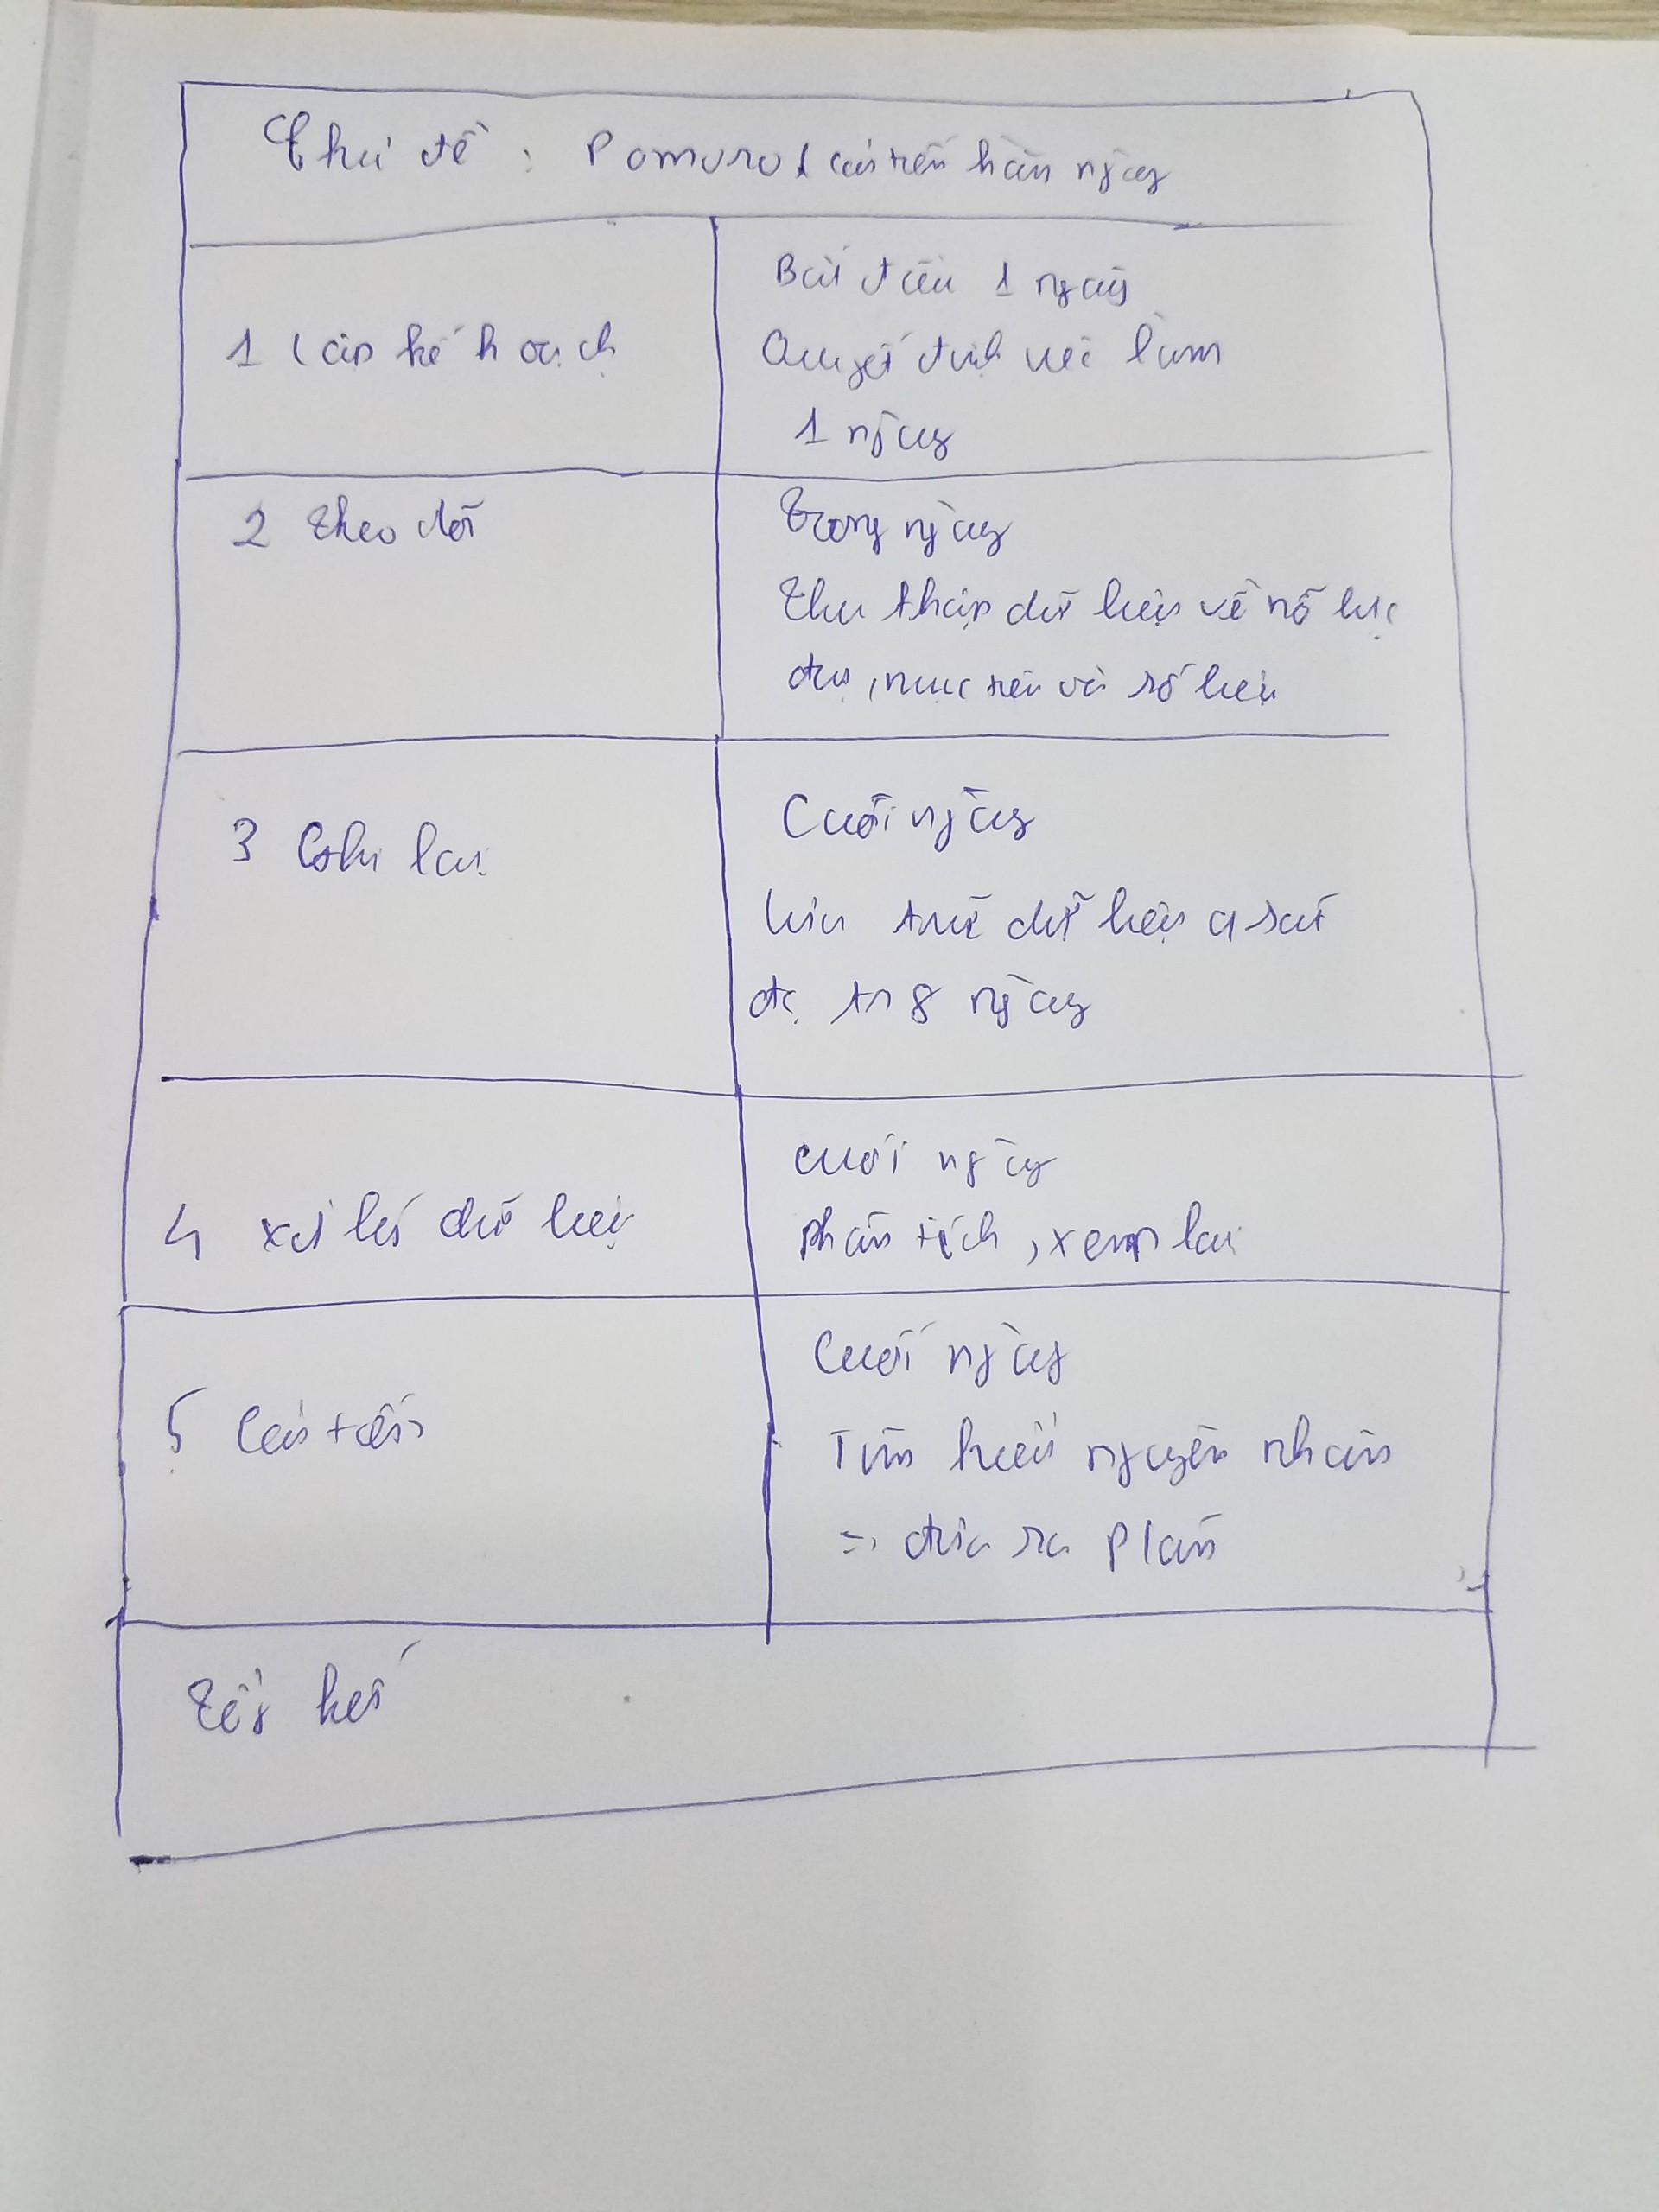 Chủ đề : Pomoro cải tiến hàng ngày
1 Lập kế hoạch
Bắt đầu 1 ngày
Quyết định việc làm
1 ngày
2 Theo dõi
Trong ngày
Thu thập dữ liệu về nỗ lực
và số liệu
3 Ghi lại
Cuối ngày
Lưu trữ dữ liệu
ngày
4 xử lí dữ liệu
cuối ngày
phân tích, xem lại
5 Cải tiến
Cuối ngày
Tìm hiểu nguyên nhân
=> đưa ra plan
Tổng kết